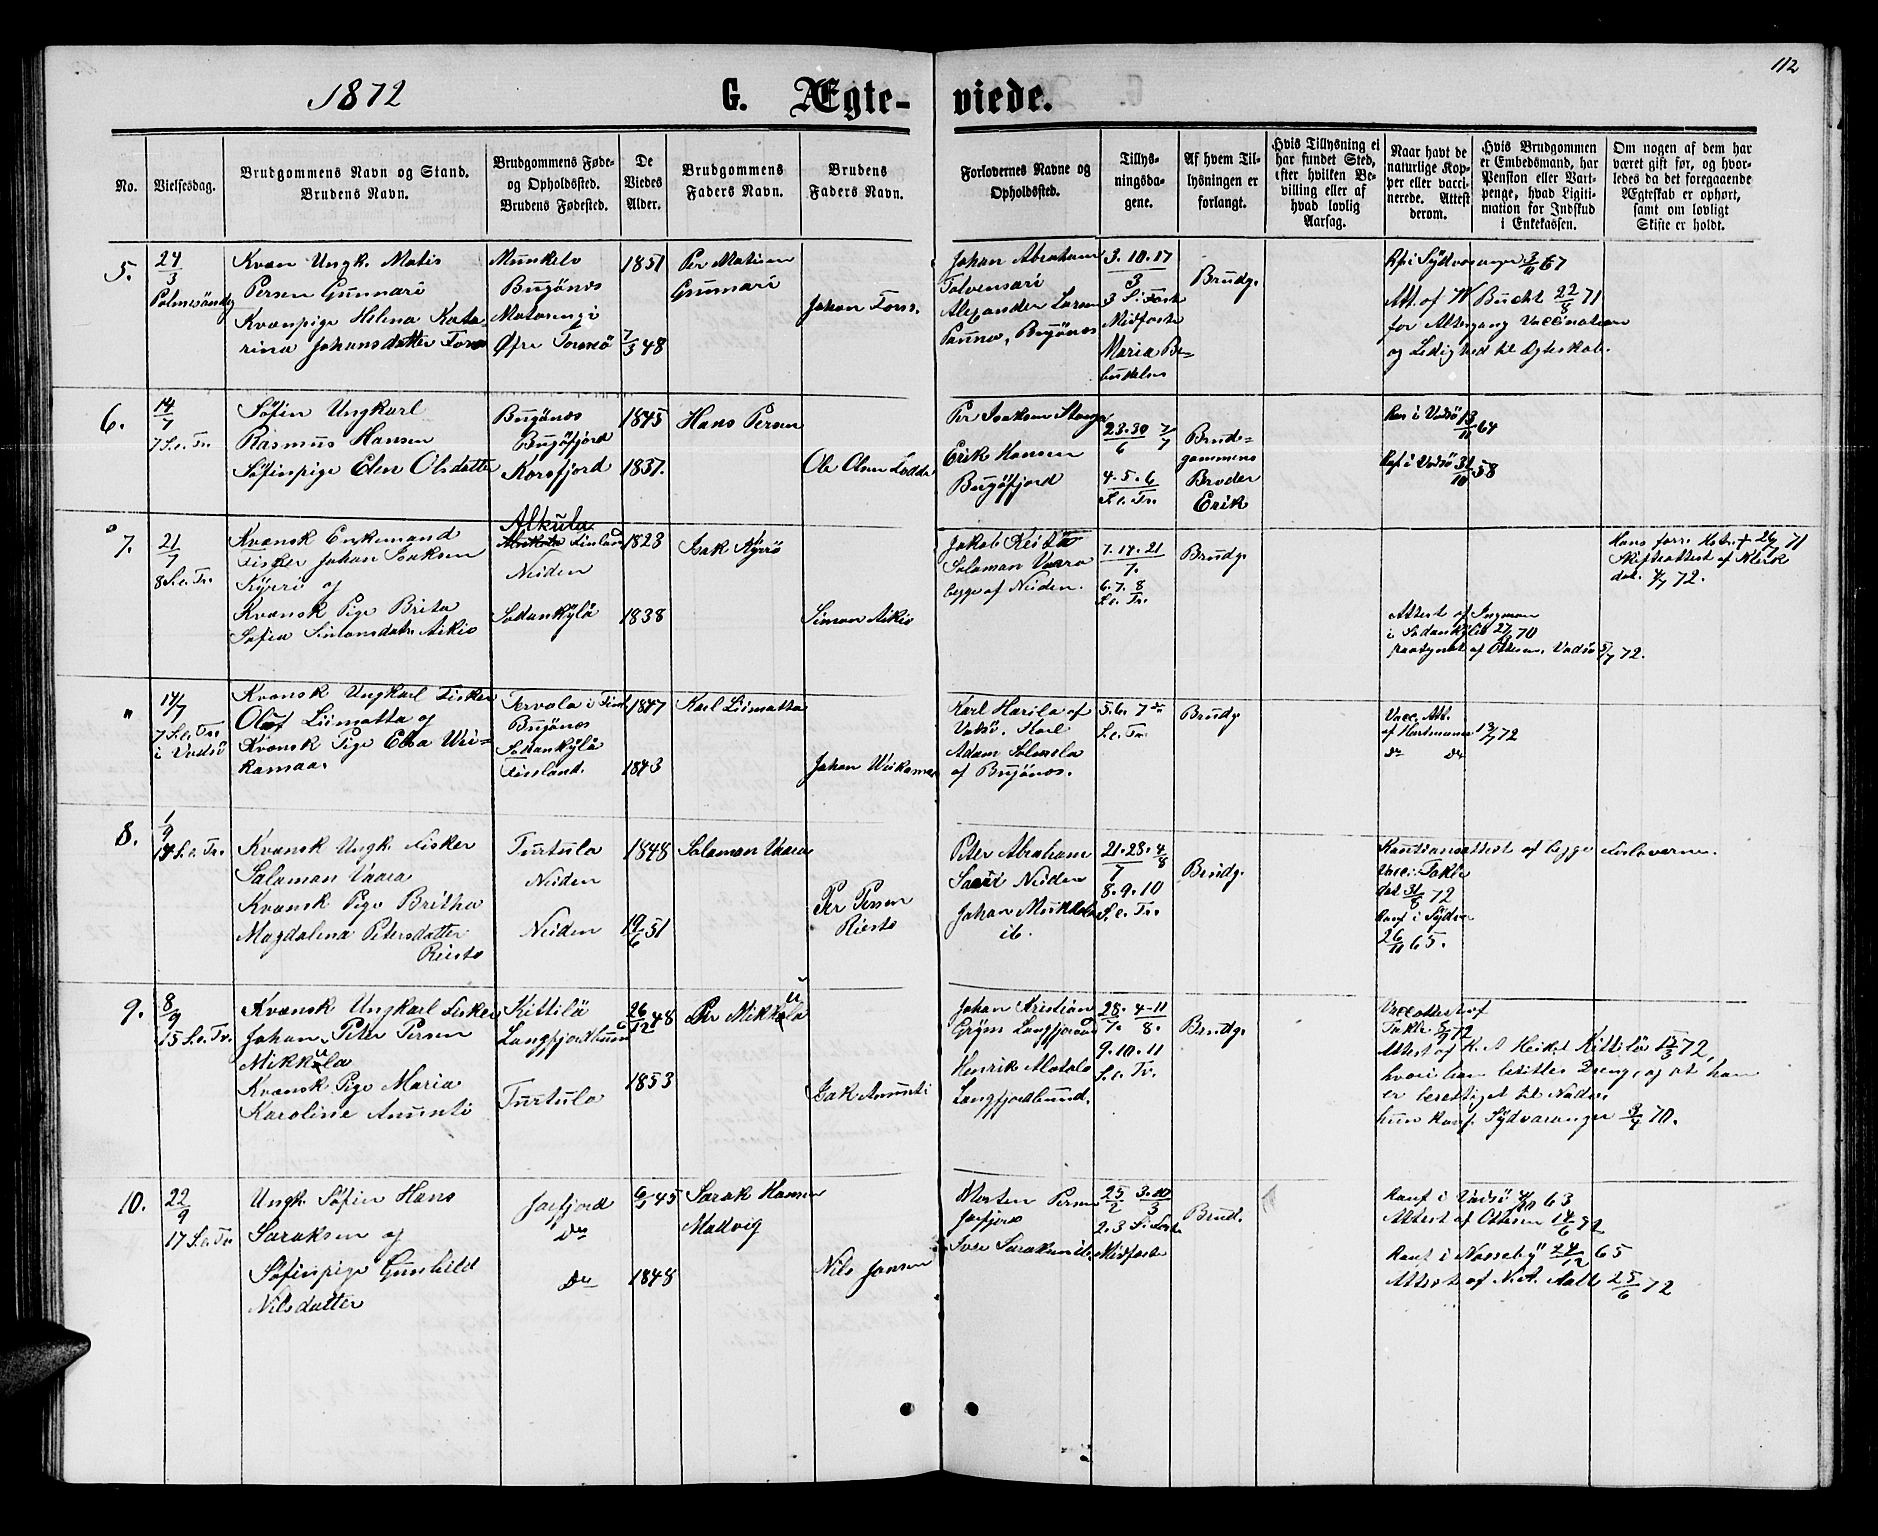 112
1872
G. Ægte-
viede.
No.
Vielsesdag.
Brudgommens Navn og Stand.
Brudens Navn.
Brudgommens Føde-
og Opholdssted.
Brudens Fødested.
De
Viedes
Alder.
Brudgommens
Faders Navn.
Brudens
Faders Navn.
Forlovernes Navne og
Opholdssted.
Tillys-
ningsda-
gene.
Af hvem Til-
lysningen er
forlangt.
Hvis Tillysning ei
har fundet Sted,
efter hvilken Be-
villing eller af
hvad lovlig
Aarsag.
Naar havt de
naturlige Kop-
per eller vacci-
nerede. Attest
derom.
Hvis Brudgommen
er Embedsmand, har
Pension eller Vart-
penge, hvad Ligiti-
mation for Indskud
i Enkekassen.
Om nogen af dem har
været gift før, og hvor-
ledes da det foregaaende
Ægteskab er ophørt,
samt om lovligt
Skifte er holdt.
5.
24/3
Palmesöndag
Kvæn Ungk. Matis
Persen Gunnari
Kvænpige Helena Kata-
rina Johansdatter
Munkelv
Bugönæs
Matarengi
Öfre Torneö
1851
7/3 48
Per Matisen
Gunnari
Johan
Johan Abraham
Tolvensari
Alexander Larsen
Panna, Bugönæs
3. 10. 17
3
3 S. i Faste
Midfaste
Maria Be-
budelse
Brudg.
Att. af W Bucht 22/8 71
for Altergang Vaccination
og Ledighed til Ægteskab.
6.
14/7
7 S. e. Tr.
Söfin Ungkarl
Rasmus Hansen
Söfinpige Elen Olsdatter
Bugönæs
Bugöfjord
Korsfjord
1845
1837.
Hans Persen
Ole Olsen
Per Isaksen
Erik Hansen
Bugöfjord
23. 30 7/7
6
4. 5. 6
S. e. Tr.
Brud-
gommens
Broder
Erik
Kon i Vadsö 13/11 64
Konf i Vadsö 31/10 58
7.
21/7
8 S. e. Tr.
Kvænsk Enkemand
Fisker Johan Isaksen
Kyrö og
Kvænsk Pige Brita
Sofia Simonsdatr Aikio
Alkula
Finland
Neiden
Sodankylä
1823
1838
Isak Kyrö
Simon Aikio
Jakob
Salaman Vaara
begge af Neiden.
7. 14. 21
7.
6. 7. 8
S. e. Tr.
Brudg.
Attest af Ingman
i Sodankylä 70
paategnet af Ottesen, Vadsö 5/7 72.
Hans forr. Hstr. † 26/7 71
Skifteattest af Klerk
dat. 4/7 72.
"
14/7
7 S. e. Tr.
i Vadsö
Kvænsk Ungkarl Fisker
Olof Liimatta og
Kvænsk Pige Elsa Uri-
kamaa.
Tervola i Finl.
Bugönæs
Sodankylä
Finland.
1847
1843
Karl Liimatta
Johan
Karl Harila af
Vadsö. Karl
Adam
af Bugönæs.
5. 6. 7 de
S. e. Tr.
Brudg.
Vacc. Att.
af Hartmann 13/7 72
do do
8.
1/9
14 S. e. Tr.
Kvænsk Ungk. Fisker
Salaman Vaara
Kvænsk Pige Britha
Magdalena Petersdatter
Riesto
Turtula
Neiden
Neiden
1848
19/6 51
Salaman Vaara
Per Persen
Riesto
Peter Abraham
Neiden
Johan
ib.
21. 28. 4/8
7
8. 9. 10
S. e. Tr.
Brudg.
Kautionsattest af begge Forloverne.
Vacc. Takle
dat 31/8 72
Konf i Sydv.
26/11 65.
9.
8/9
15 S. e. Tr.
Kvænsk Ungkarl Fisker
Johan Peter Persen
Mikkula
Kvænsk Pige Maria
Karoline Anunti
Kittilä
Langfjordbund
Turtula
26/12 48
1853
Per Mikkula
Isak Anunti
Johan Kristian
Gröjer
Henrik
Langfjordbund.
28. 4-11
7. 8.
9. 10. 11
S. e. Tr.
Brudg.
Vacc. attest af
Takle 5/9 72
Attest af K. A Heikel Kittilä 72,
hvori han kaldes Dreng, og at han
er berettiget til Nadv.
hun konf. Sydvaranger 70.
10.
22/9
17 S. e. Tr.
Ungk. Söfin Hans
Saraksen og
Söfinpige Gunhild
Nilsdatter
Jarfjord
Do
Do
45
1848
Sarak Hansen
Madvig
Nils Jansen
Morten Persen
Jarfjord
Iver Saraksen ib.
25/2 3. 10/3
2. 3 S. i Faste
Midfaste
Brud.
Konf i Vadsö 63
Attest af Ottesen 14/6 72
Konf i Næsseby 24/12 65
Attest af N. A. Aall 25/6 72